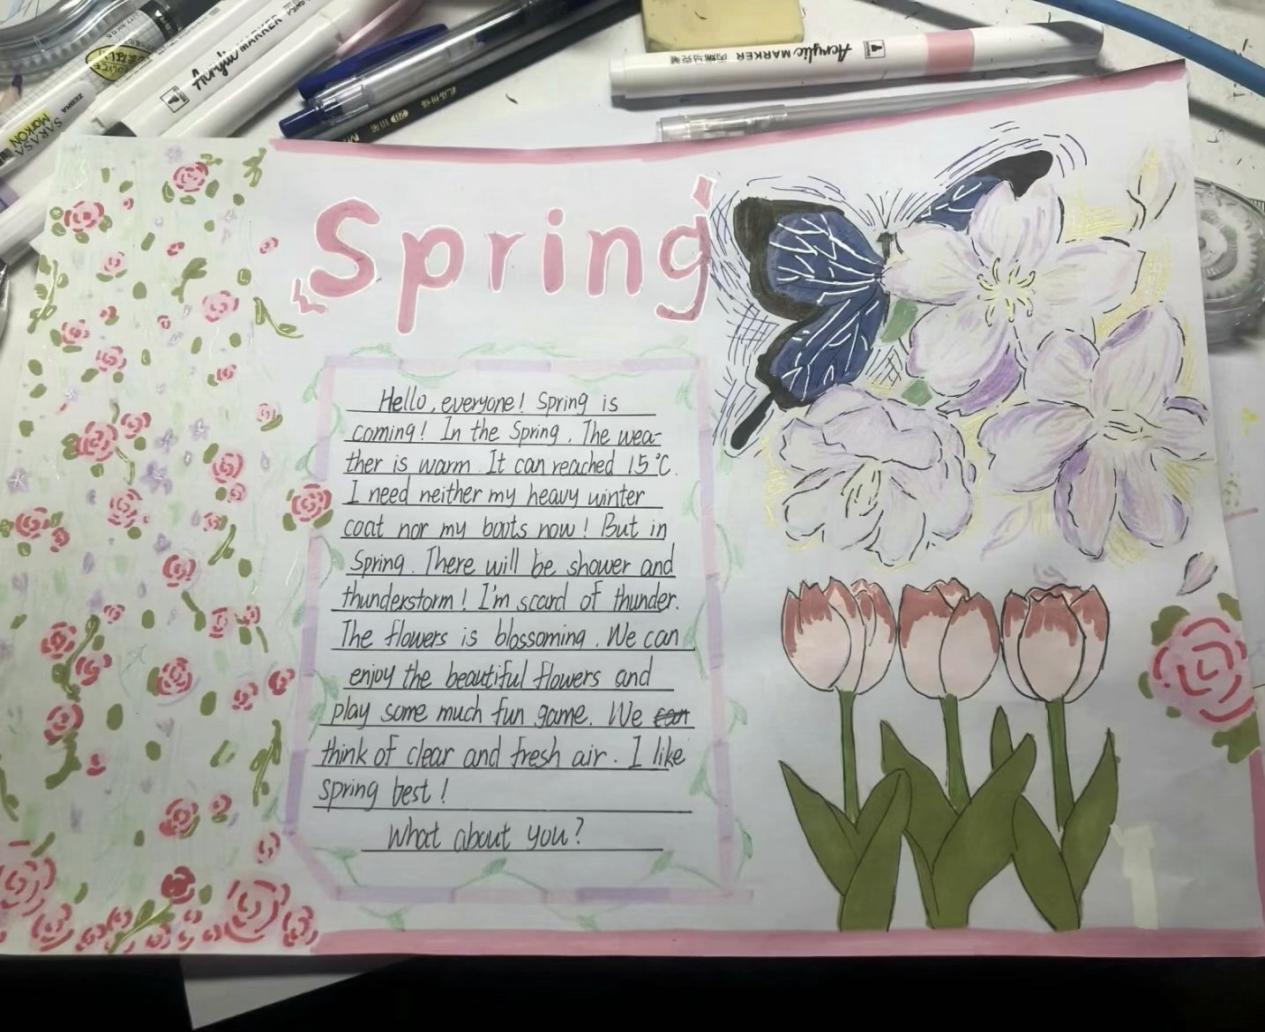 Acrylic MARKER
SARASA
MARKON
ZEBRA
Acrylic MARKER
Spring
Hello, everyone! Spring is
coming! In the Spring. The wea-
ther is warm. It can reached 15°C.
I need neither my heavy winter
coat nor my boots now! But in
Spring. There will be shower and
thunderstorm! I'm scard of thunder.
The flowers is blossoming. We can
enjoy the beautiful flowers and
play some much fun game. We can
think of clear and fresh air. I like
spring best!
What about you?